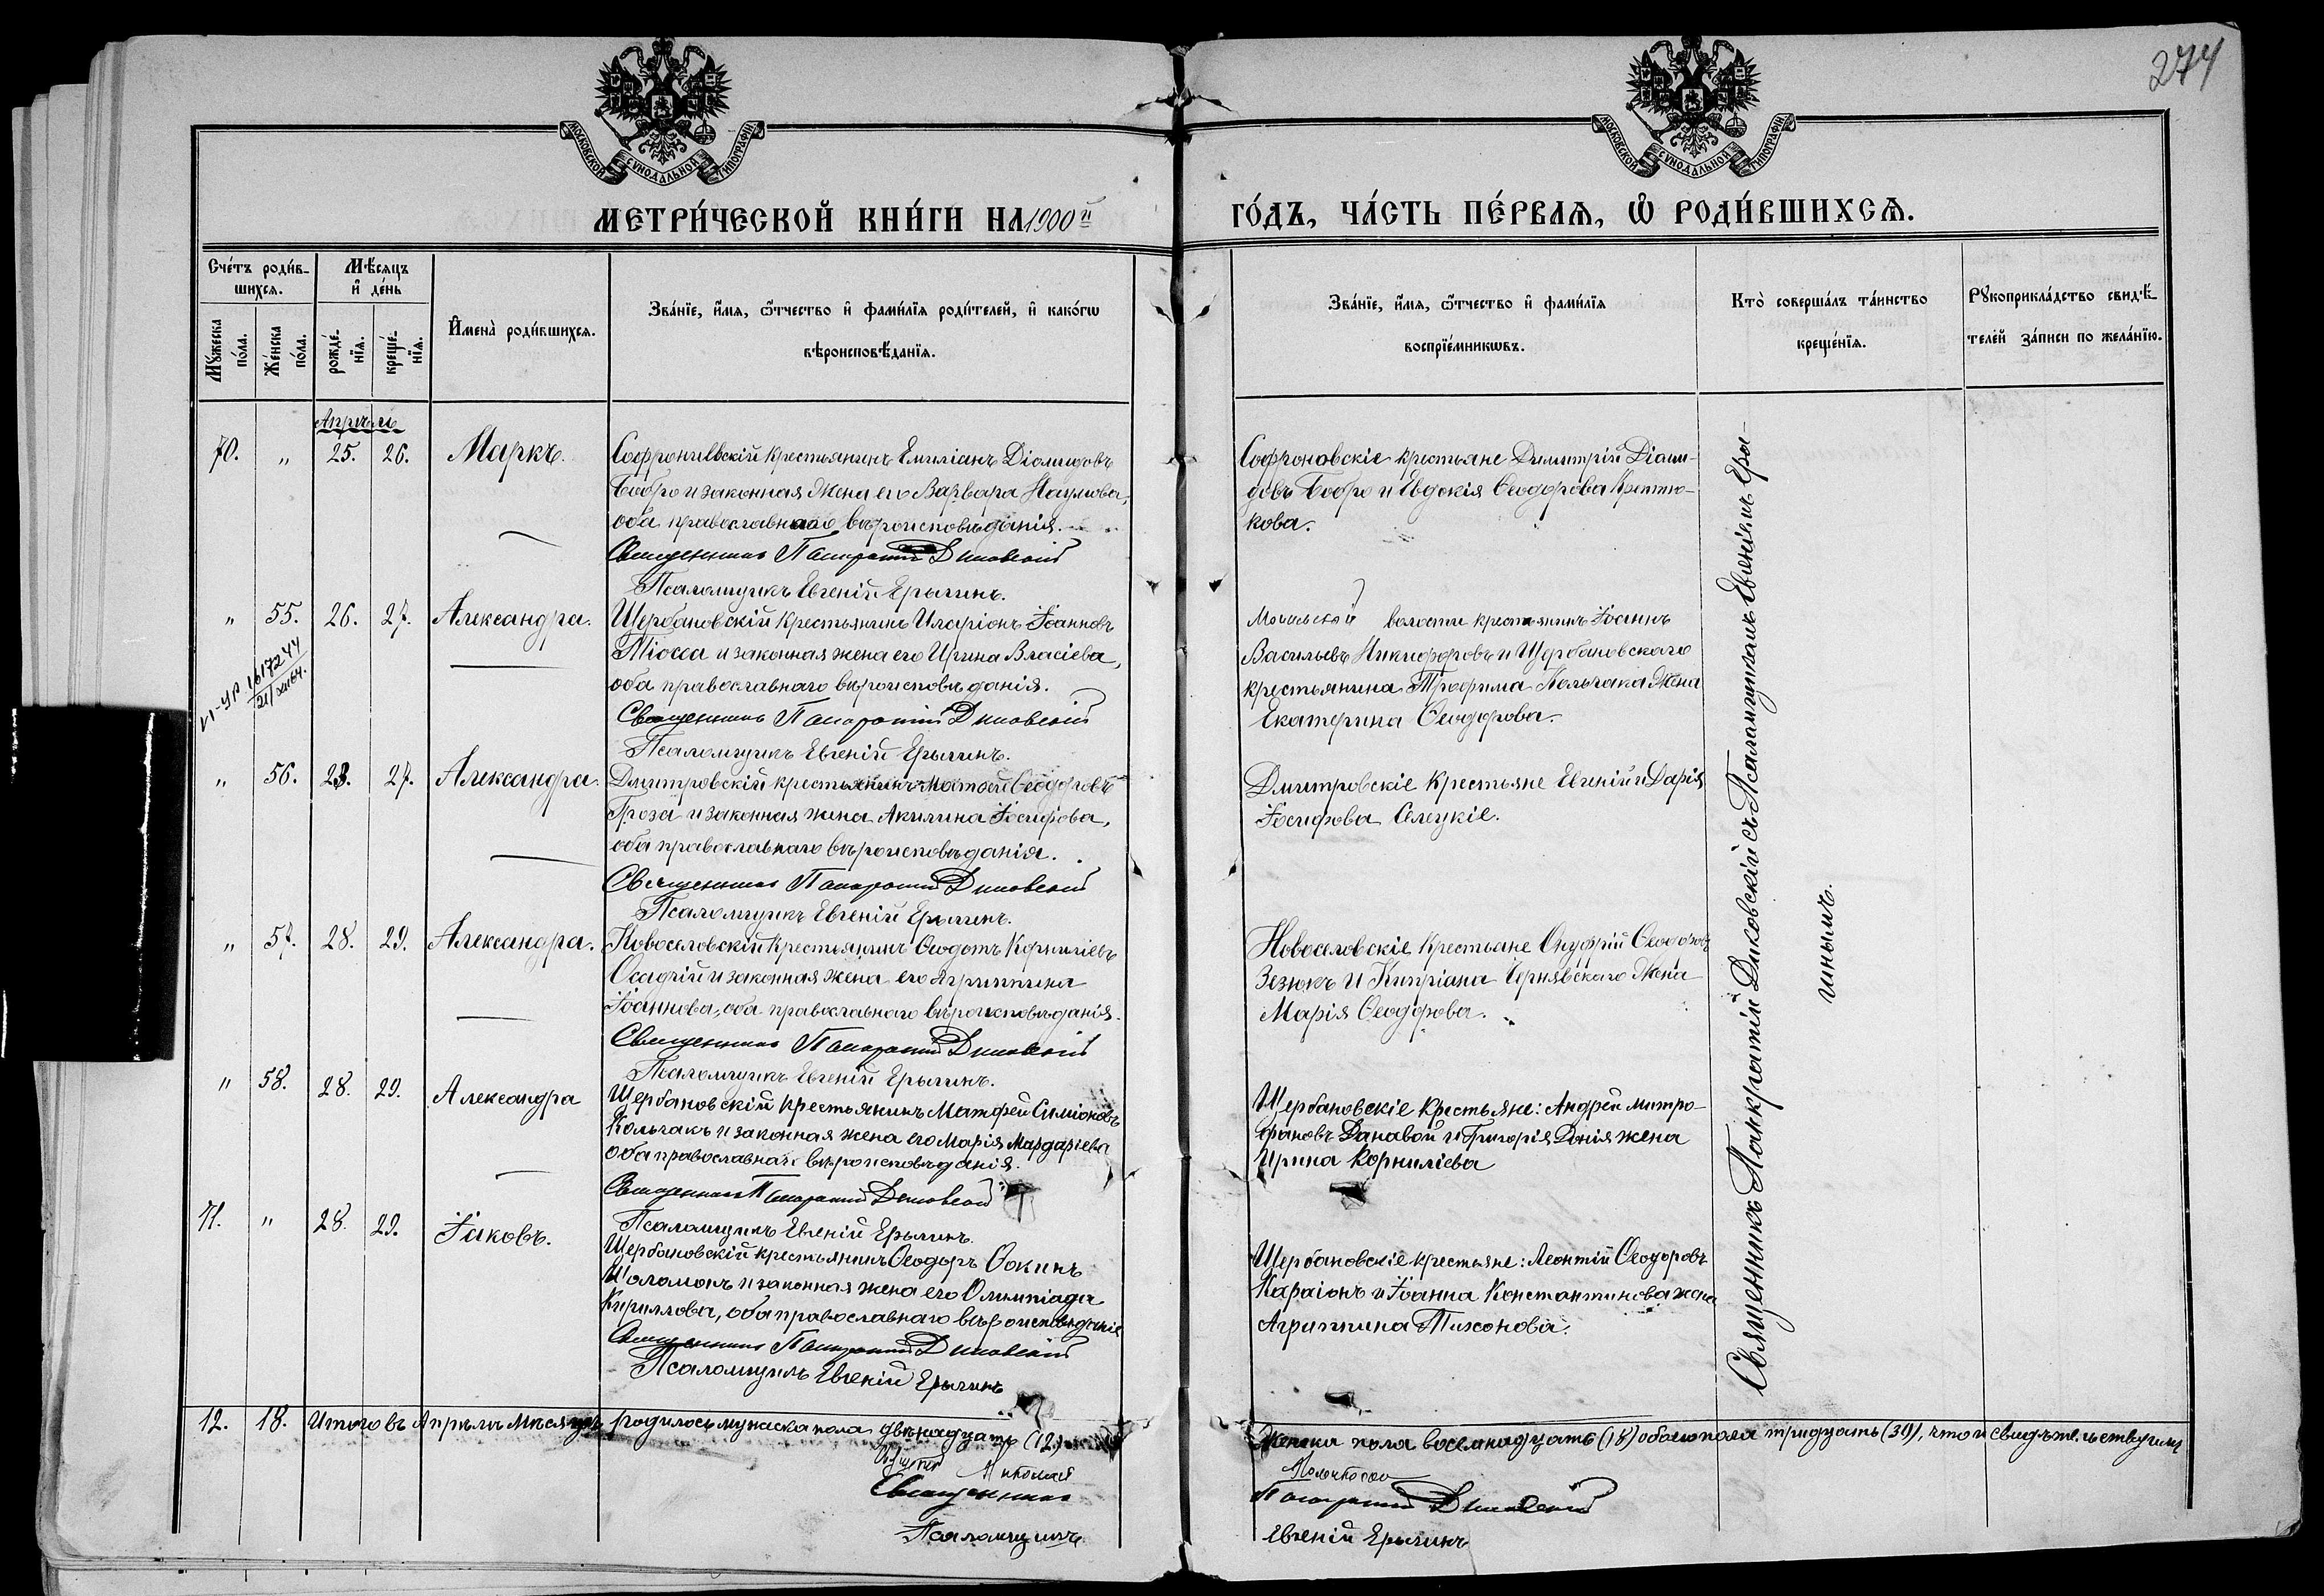 274
МОСКОВСКОЙ СѴНОДАЛЬНОЙ ТИПОГРАФІИ
МОСКОВСКОЙ СѴНОДАЛЬНОЙ ТИПОГРАФІИ
МЕТРИ́ЧЕСКОЙ КНИ́ГИ НА 1900й ГО́ДЪ, ЧА́СТЬ ПЕ́РВАѦ, Ѡ҆ РОДИ́ВШИХСѦ.
Сче́тъ роди́в-
шихсѧ.
Мꙋ́жеска
по́ла.
Же́нска
по́ла.
Мѣ́сѧцъ
и҆ де́нь
рожде́-
нїѧ.
креще́-
нїѧ.
И҆мена̀ роди́вшихсѧ.
Зва́нїе, и҆́мѧ, ѻ҆́тчество и҆ фами́лїѧ роди́телей, и҆ како́гѡ
вѣроисповѣ́данїѧ.
Зва́нїе, и҆́мѧ, ѻ҆́тчество и҆ фами́лїѧ
воспрїе́мникѡвъ.
Кто̀ соверша́лъ та́инство
креще́нїѧ.
Рꙋкоприкла́дство свидѣ́-
телей за́писи по жела́нїю.
Апрѣль
70. " 25. 26. Маркъ.
Софрониевскій крестьянинъ Емиліанъ Діомидовъ
Бобро и законная жена его Варвара Наумова,
оба православнаго вѣроисповѣданія.
Священникъ Панкратій Диковскій
Псаломщикъ Евгеній Ерыгинъ.
Софроновскіе крестьяне Димитрій Діоми-
довъ Бобро и Евдокія Ѳеодорова
кова.
" 55. 26. 27. Александра.
Щербановскій крестьянинъ Иларіонъ Іоанновъ
Тіосса и законная жена его Ирина Власіева,
оба православнаго вѣроисповѣданія.
Священникъ Панкратій Диковскій
Псаломщикъ Евгеній Ерыгинъ.
волости крестьянинъ Іоаннъ
Васильевъ Никифоровъ и Щербановскаго
крестьянина Трофима Кольчака жена
Екатерина Ѳеодорова.
1617244
" 56. 23. 27. Александра.
Дмитровскій крестьянинъ Матѳей Ѳеодоровъ
Гроза и законная жена Акилина Іосифова,
оба православнаго вѣроисповѣданія.
Священникъ Панкратій Диковскій
Псаломщикъ Евгеній Ерыгинъ.
Дмитровскіе крестьяне Евгеній и Дарія
Іосифова Селецкіе.
" 57. 28. 29. Александра.
Новоселовскій крестьянинъ Ѳеодотъ Корниліевъ
Осадчій и законная жена его Агриппина
Іоаннова, оба православнаго вѣроисповѣданія.
Священникъ Панкратій Диковскій
Псаломщикъ Евгеній Ерыгинъ.
Новоселовскіе крестьяне Онуфрій Ѳеодоровъ
Зезюкъ и Кипріана Чернявскаго жена
Марія Ѳеодорова.
" 58. 28. 29. Александра
Щербановскій крестьянинъ Матфей Симіоновъ
Кольчакъ и законная жена его Марія Мардаріева
оба православнаго вѣроисповѣданія.
Священникъ Панкратій Диковскій
Псаломщикъ Евгеній Ерыгинъ.
Щербановскіе крестьяне: Андрей Митро-
фановъ Данавой и Григорія Донія жена
Ирина Корниліева
71. " 28. 29. Іаковъ.
Щербановскій крестьянинъ Ѳеодоръ Ѳокинъ
Шоломонъ и законная жена его Олимпіада
Кириллова, оба православнаго вѣроисповѣданія
Священникъ Панкратій Диковскій
Псаломщикъ Евгеній Ерыгинъ
Щербановскіе крестьяне: Леонтій Ѳеодоровъ
Караіонъ и Іоанна Константинова жена
Агриппина Тихонова.
Священникъ Панкратій Диковскій съ Псаломщикомъ Евгеніемъ Еры-
гинымъ.
12. 18. Итого въ Апрѣлѣ мѣсяцѣ родилось мужеска пола двѣнадцать (12) женска пола восемнадцать (18) обоего пола тридцать (30), что и свидѣтельствуемъ
Николай
Священникъ Панкратій Диковскій
Псаломщикъ Евгеній Ерыгинъ